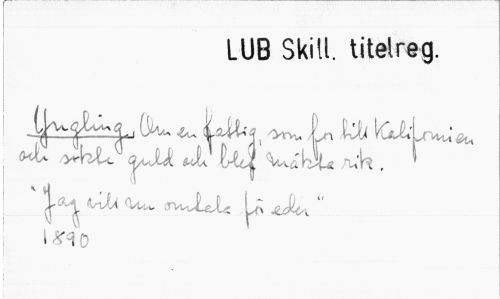 LUB Skill. titelreg.
Yngling, Om en fattig, som for till Kalifornien
och sökte guld och blef mäkta rik.
"Jag vill nu omtala för eder"
1890